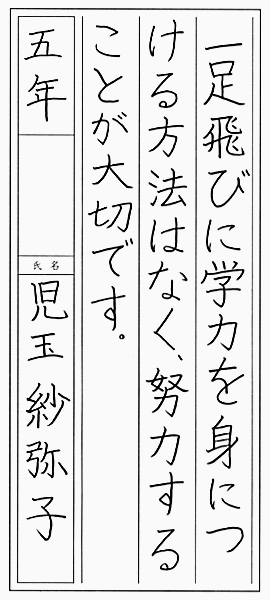 一足飛びに学力を身につ
ける方法はなく、努力する
ことが大切です。
五年
氏名
児玉紗弥子